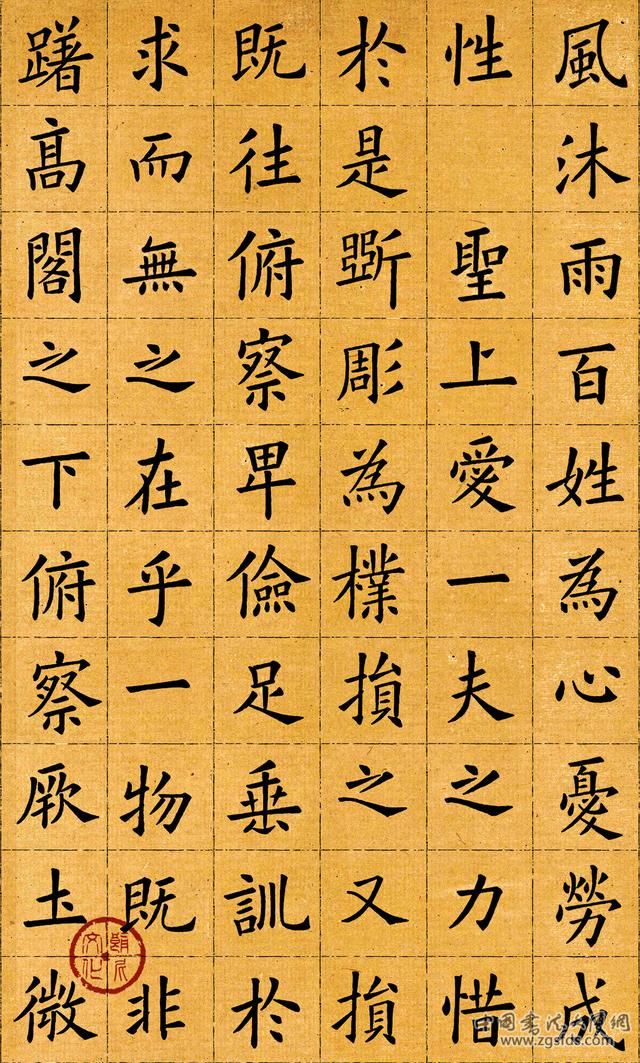 風沐雨百姓為心憂勞成
性 聖上愛一夫之力惜
於是斲彫為樸損之又損
既往俯察卑儉足垂訓於
求而無之在乎一物既非
躇髙閣之下俯察厥土微
www.zgsfds.com